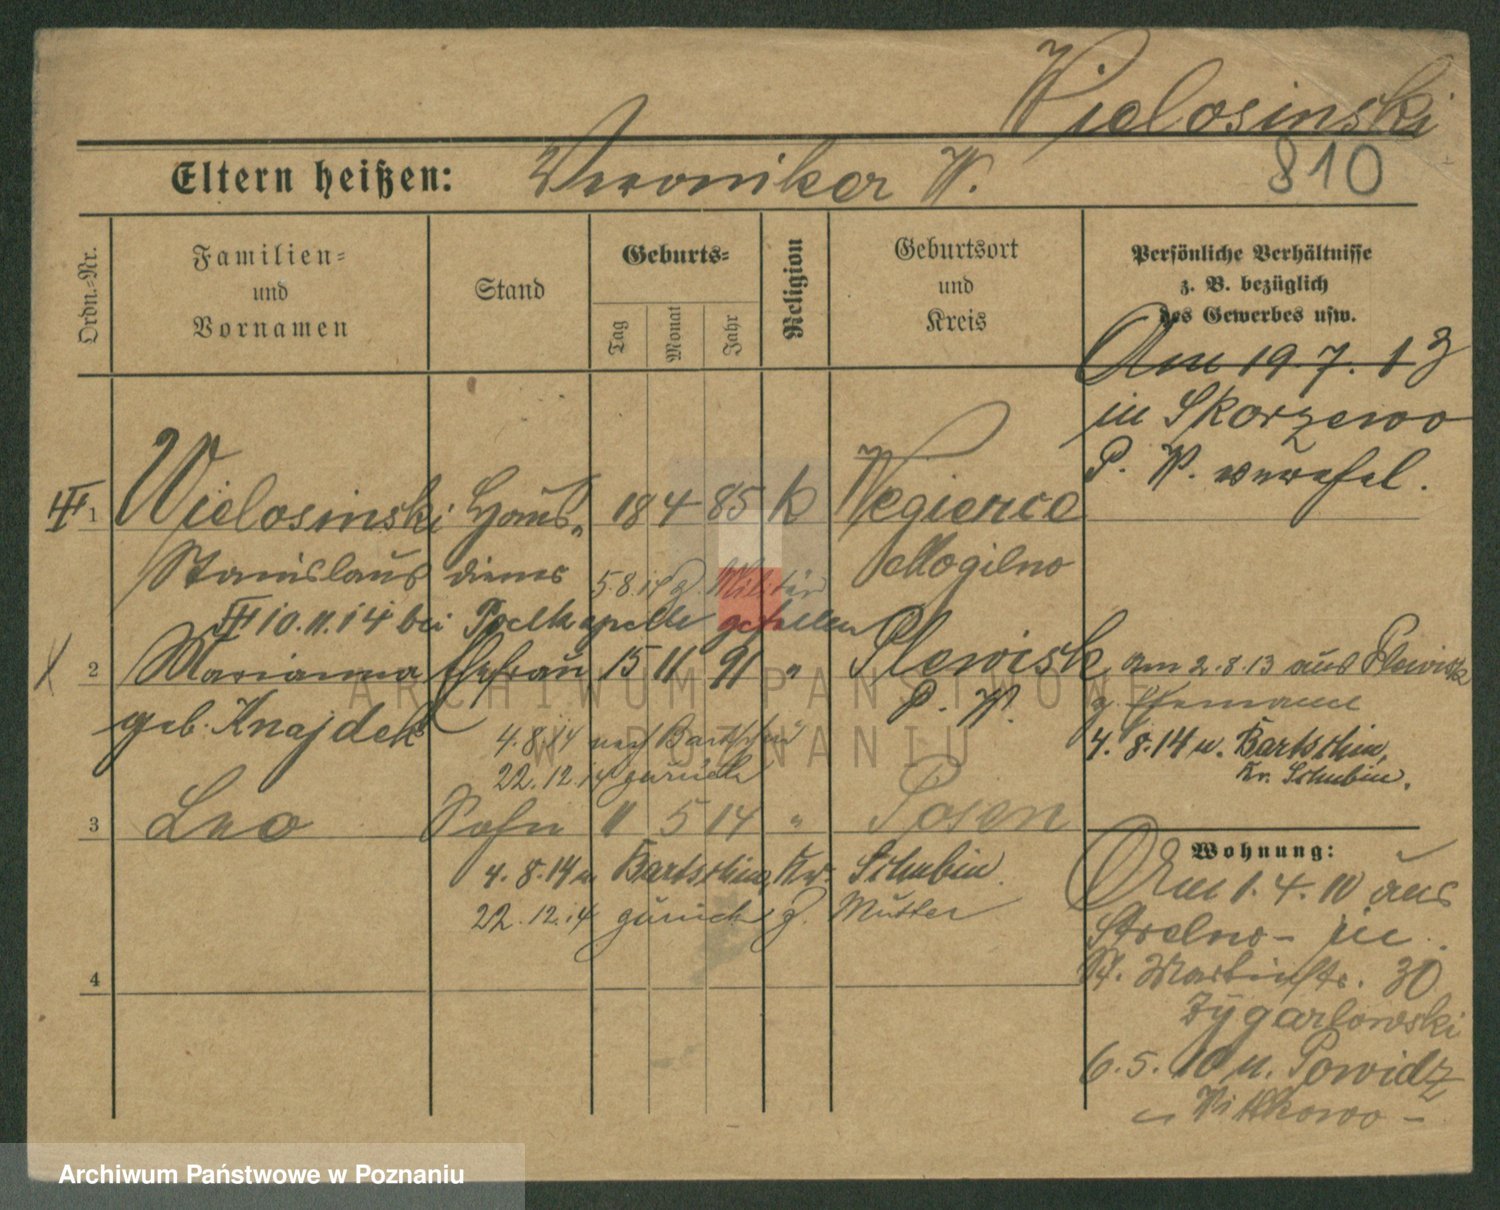 Wielosinski
810
Eltern heißen: Veronika W.
Ordn.-Nr.
Familien- und Vornamen
Stand
Geburts-
Tag
Monat
Jahr
Religion
Geburtsort und Kreis
Persönliche Verhältnisse
z. B. bezüglich
des Gewerbes usw.
Am 19.7.13
in Skorzewo
P. W.
1 Wielosinski Haus- 18 4 85 K Wegierce
Stanislaus diener Mogilno
5.8.14 z. Militär
10.11.14 bei Poelkapelle gefallen
2 Marianna Ehefrau 15 11 91 " Plewisk
geb. Knajdek P. W.
am 2.8.13 aus Plewisk
z. Ehemann
4.8.14 n. Bartschin,
Kr. Schubin.
4.8.14 nach Bartschin
22.12.14 zurück
3 Leo Sohn 11 5 14 " Posen
4.8.14 n. Bartschin, Kr. Schubin.
22.12.14 zurück z. Mutter
4
Wohnung:
Am 1.4.10 aus
Strelno - in
St. Martinstr. 30
Zygarlowski
6.5.10 n. Powidz
- Witkowo -
ARCHIWUM PAŃSTWOWE
W POZNANIU
Archiwum Państwowe w Poznaniu